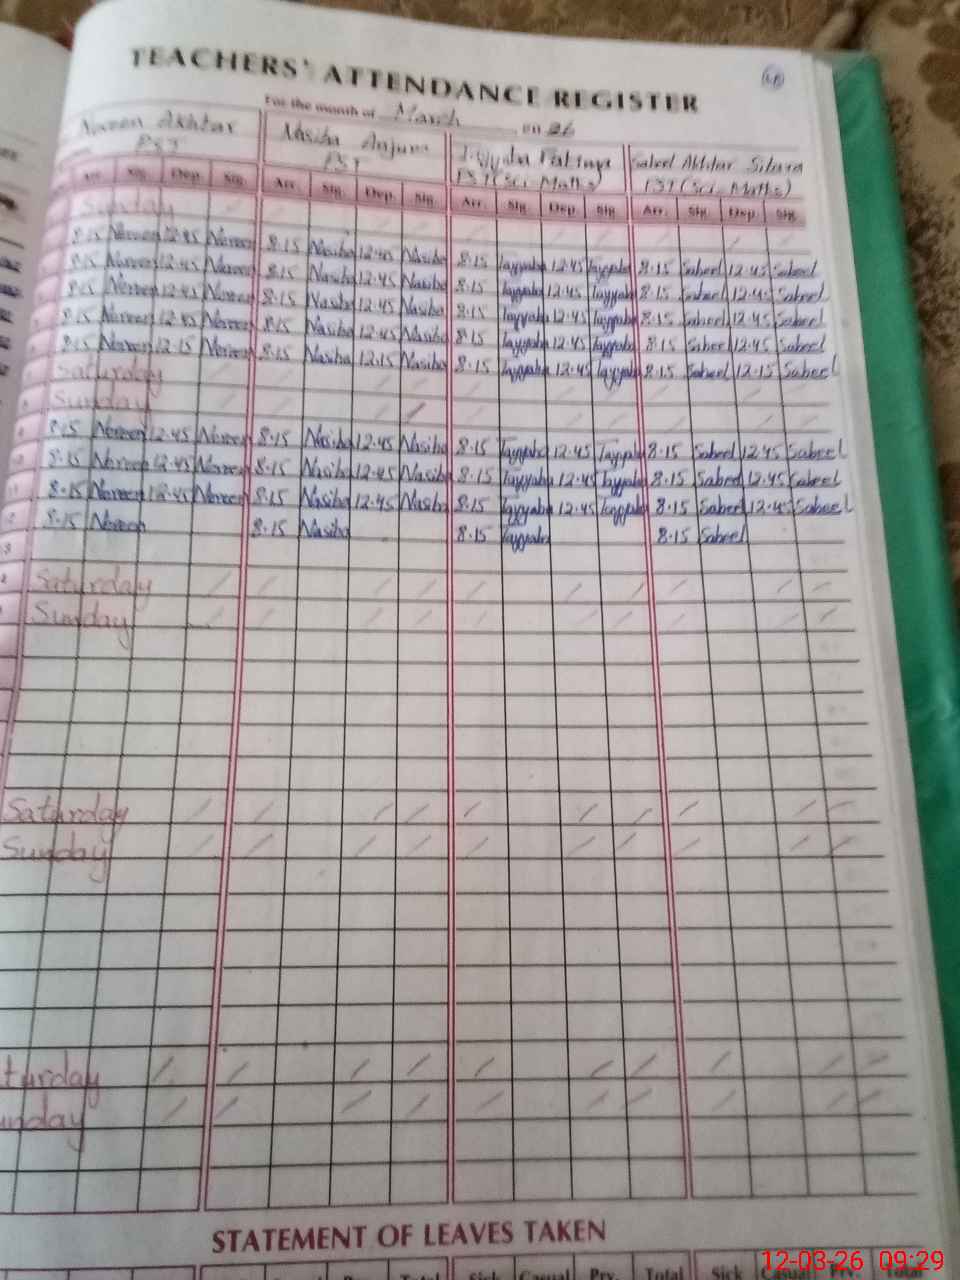 TEACHERS' ATTENDANCE REGISTER
For the month of March 26
Noreen Akhtar Nasiba Anjum Tayyaba Fatima Sabeel Akhtar
PST PST PST (Sci Maths) PST (Sci. Maths)
Arr. Sig. Dep. Sig. Arr. Sig. Dep. Sig. Arr. Sig. Dep. Sig. Arr. Sig. Dep. Sig.
Sunday
8.15 Noreen 12.45 Noreen 8.15 Nasiba 12.45 Nasiba 8.15 Tayyaba 12.45 Tayyaba 8.15 Sabeel 12.45 Sabeel
8.15 Noreen 12.45 Noreen 8.15 Nasiba 12.45 Nasiba 8.15 Tayyaba 12.45 Tayyaba 8.15 Sabeel 12.45 Sabeel
8.15 Noreen 12.45 Noreen 8.15 Nasiba 12.45 Nasiba 8.15 Tayyaba 12.45 Tayyaba 8.15 Sabeel 12.45 Sabeel
8.15 Noreen 12.45 Noreen 8.15 Nasiba 12.45 Nasiba 8.15 Tayyaba 12.45 Tayyaba 8.15 Sabeel 12.45 Sabeel
8.15 Noreen 12.15 Noreen 8.15 Nasiba 12.15 Nasiba 8.15 Tayyaba 12.45 Tayyaba 8.15 Sabeel 12.15 Sabeel
Saturday
Sunday
8.15 Noreen 12.45 Noreen 8.15 Nasiba 12.45 Nasiba 8.15 Tayyaba 12.45 Tayyaba 8.15 Sabeel 12.45 Sabeel
8.15 Noreen 12.45 Noreen 8.15 Nasiba 12.45 Nasiba 8.15 Tayyaba 12.45 Tayyaba 8.15 Sabeel 12.45 Sabeel
8.15 Noreen 12.45 Noreen 8.15 Nasiba 12.45 Nasiba 8.15 Tayyaba 12.45 Tayyaba 8.15 Sabeel 12.45 Sabeel
8.15 Noreen 8.15 Nasiba 8.15 Tayyaba 8.15 Sabeel
Saturday
Sunday
Saturday
Sunday
turday
unday
STATEMENT OF LEAVES TAKEN
Casual Prv. Total Sick Casual Prv. Total Sick Casual Prv. Total
12-03-26 09:29